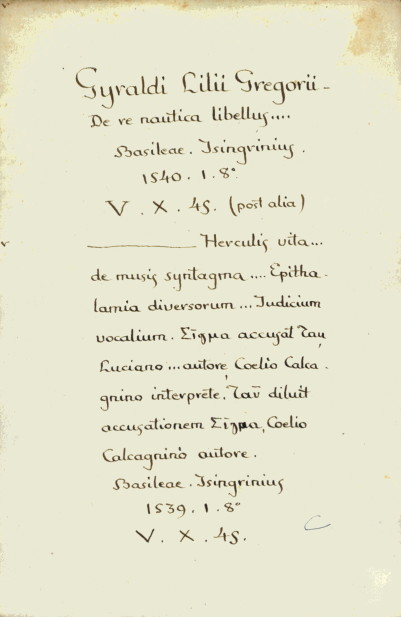 Gyraldi Lilii Gregorii -
De re nautica libellus....
Basileae. Isingrinius.
1540. 1. 8°
V. X. 45. (post alia)
Herculis vita...
de musis syntagma .... Epitha-
lamia diversorum ... Iudicium
vocalium. Σίγμα accusat Ταυ
Luciano ... autore Coelio Calca-
gnino interprete. Ταῦ diluit
accusationem Σίγμα, Coelio
Calcagnino autore.
Basileae. Isingrinius
1539. 1. 8°
V. X. 45.